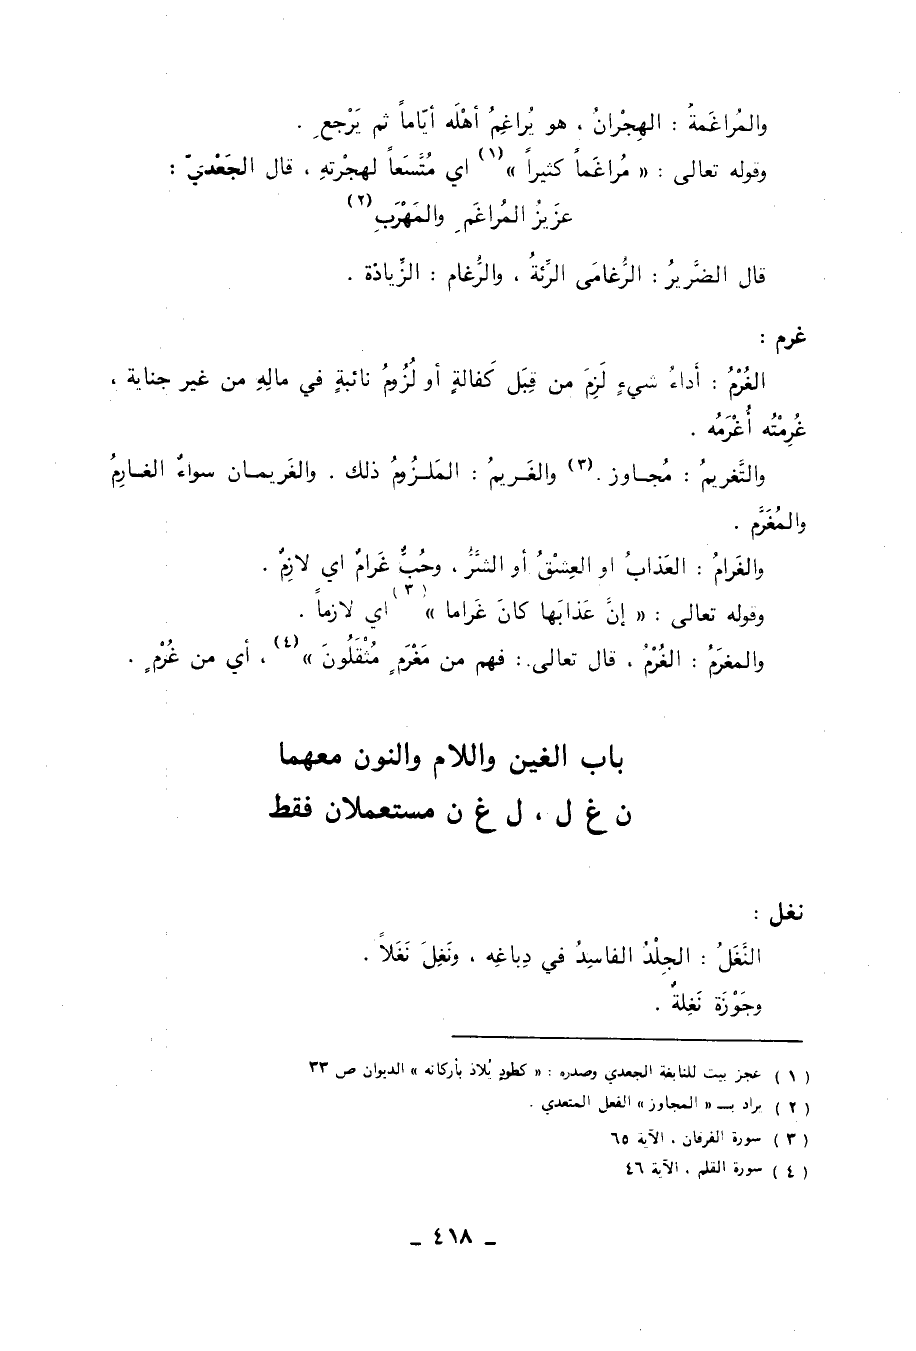 والمُراغَمةُ : الهِجْرانُ ، هو يُراغِمُ أهْلَه أيّاماً ثم يَرْجعِ .
وقوله تعالى : « مُراغَماً كثيراً »(١) اي مُتَّسَعاً لهجْرتهِ ، قال الجَعْديّ :
عزَيزُ المُراغَمِ والمَهْرَبِ(٢)
قال الضَّريرُ : الرُّغامَى الرِّئةُ ، والرُّغام : الزِّيادْة .
غرم :
الغُرْمُ : أَداءُ شيءٍ لَزِمَ من قِبَل كَفالةٍ أو لُزُومُ نائبةٍ في مالِهِ من غير جناية ،
غُرِمْتُه أُغْرَمُه .
والتَّغريمُ : مُجـاوز .(٣) والغَـريمُ : المَلـزُومُ ذلك . والغَريمـان سواءٌ الغـارِمُ
والمُغَرَّم .
والغَرامُ : العَذابُ او العِشْقُ أو الشَّرُّ ، وحُبٌّ غَرامٌ اي لازِمٌ .
وقوله تعالى : « إنَّ عَذابَها كانَ غَراما »(٣) اي لازماً .
والمغرَمُ : الغُرْمُ ، قال تعالى : فهم من مَغْرَمٍ مُثْقَلُونَ »(٤) ، أي من غُرْمٍ .
باب الغين واللام والنون معهما
ن غ ل ، ل غ ن مستعملان فقط
نغل :
النَّغَلُ : الجِلْدُ الفاسِدُ في دِباغِه ، ونَغِلَ نَغَلاً .
وجَوْزَة نَغِلةٌ .
( ١ ) عجز بيت للنابغة الجعدي وصدره : « كطودٍ يُلاذ بأركانه » الديوان ص ٣٣
( ٢ ) يراد بـ « المجاوز » الفعل المتعدي .
( ٣ ) سورة الفرقان ، الآية ٦٥
( ٤ ) سورة القلم ، الآية ٤٦
ـ ٤١٨ ـ